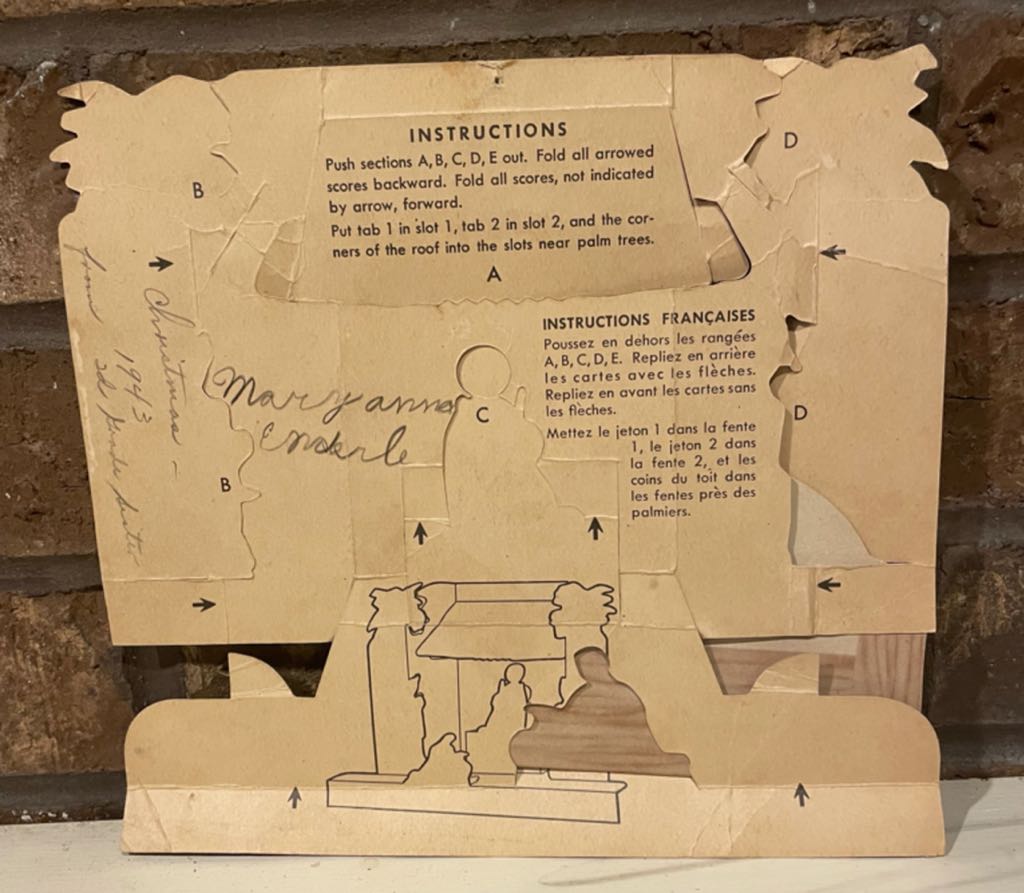 INSTRUCTIONS
Push sections A, B, C, D, E out. Fold all arrowed
scores backward. Fold all scores, not indicated
by arrow, forward.
Put tab 1 in slot 1, tab 2 in slot 2, and the cor-
ners of the roof into the slots near palm trees.
A
B
D
INSTRUCTIONS FRANÇAISES
Poussez en dehors les rangées
A, B, C, D, E. Repliez en arrière
les cartes avec les flèches.
Repliez en avant les cartes sans
les flèches.
Mettez le jeton 1 dans la fente
1, le jeton 2 dans
la fente 2, et les
coins du toit dans
les fentes près des
palmiers.
C
D
B
Mary anna
Enderle
Christmas –
1943
from 2d Grade sister